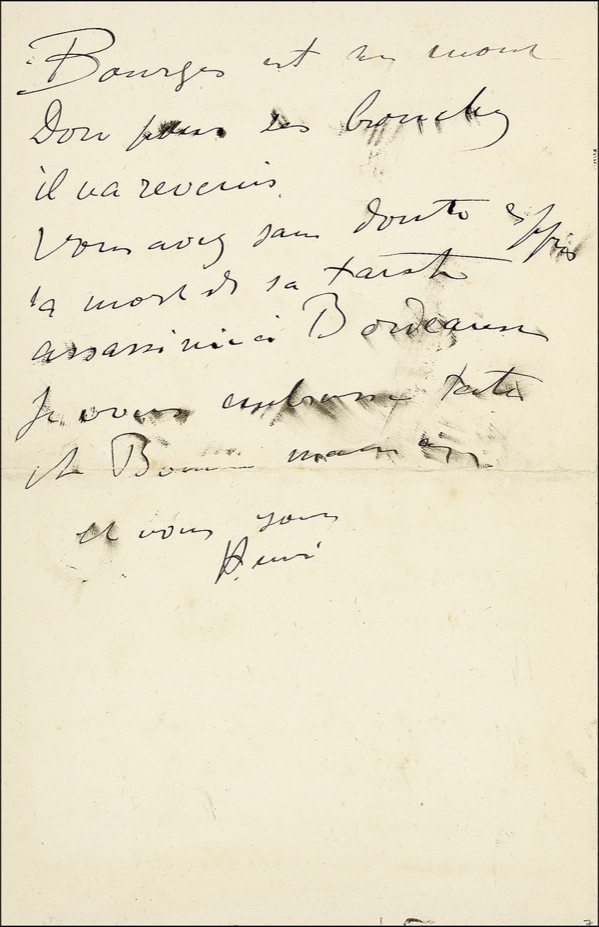 Bourges est au mont
Dore pour ses bronches
il va revenir.
Vous avez sans doute appris
la mort de sa tante
assassinée à Bordeaux
Je vous embrasse tante
et Bonne maman
et vous
Henri